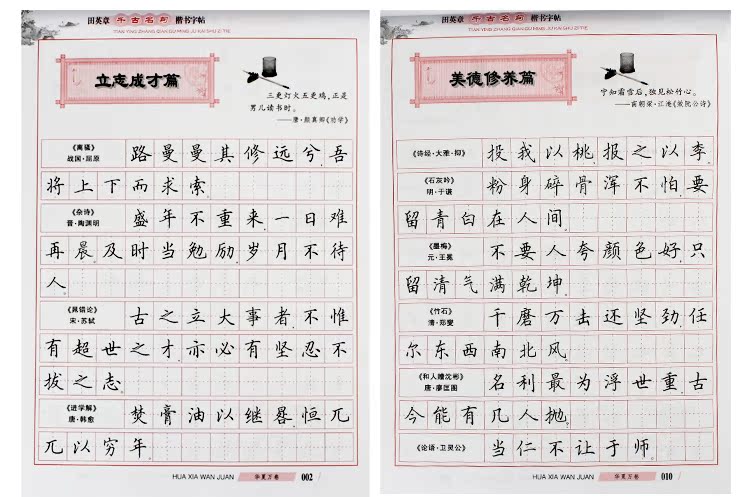 田英章 千古名句 楷书字帖
TIAN YING ZHANG QIAN GU MING JU KAI SHU ZI TIE
立志成才篇
三更灯火五更鸡,正是
男儿读书时。
——唐·颜真卿《劝学》
《离骚》
战国·屈原
路曼曼其修远兮,吾
将上下而求索。
《杂诗》
晋·陶渊明
盛年不重来,一日难
再晨。及时当勉励,岁月不待
人。
《晁错论》
宋·苏轼
古之立大事者,不惟
有超世之才,亦必有坚忍不
拔之志。
《进学解》
唐·韩愈
焚膏油以继晷,恒兀
兀以穷年。
HUA XIA WAN JUAN
华夏万卷
002
田英章 千古名句 楷书字帖
TIAN YING ZHANG QIAN GU MING JU KAI SHU ZI TIE
美德修养篇
宁知霜雪后,独见松竹心。
——南朝梁·江淹《效阮公诗》
《诗经·大雅·抑》
投我以桃,报之以李。
《石灰吟》
明·于谦
粉身碎骨浑不怕,要
留青白在人间。
《墨梅》
元·王冕
不要人夸颜色好,只
留清气满乾坤。
《竹石》
清·郑燮
千磨万击还坚劲,任
尔东西南北风。
《和人赠沈彬》
唐·廖匡图
名利最为浮世重,古
今能有几人抛。
《论语·卫灵公》
当仁不让于师。
HUA XIA WAN JUAN
华夏万卷
010